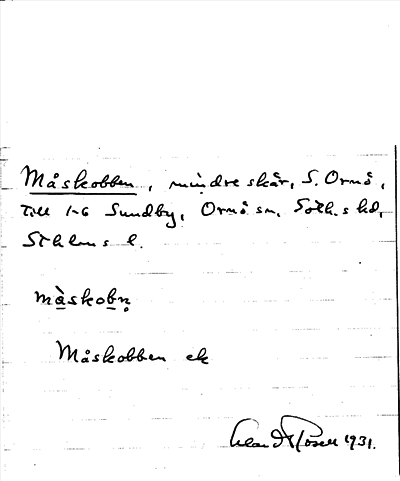 Måskobben, mindre skär, S. Ornö,
till 1-6 Sundby, Ornö sn, Soth.s hd,
Sthlms l.
måskobn̥
Måskobben ek
1931.